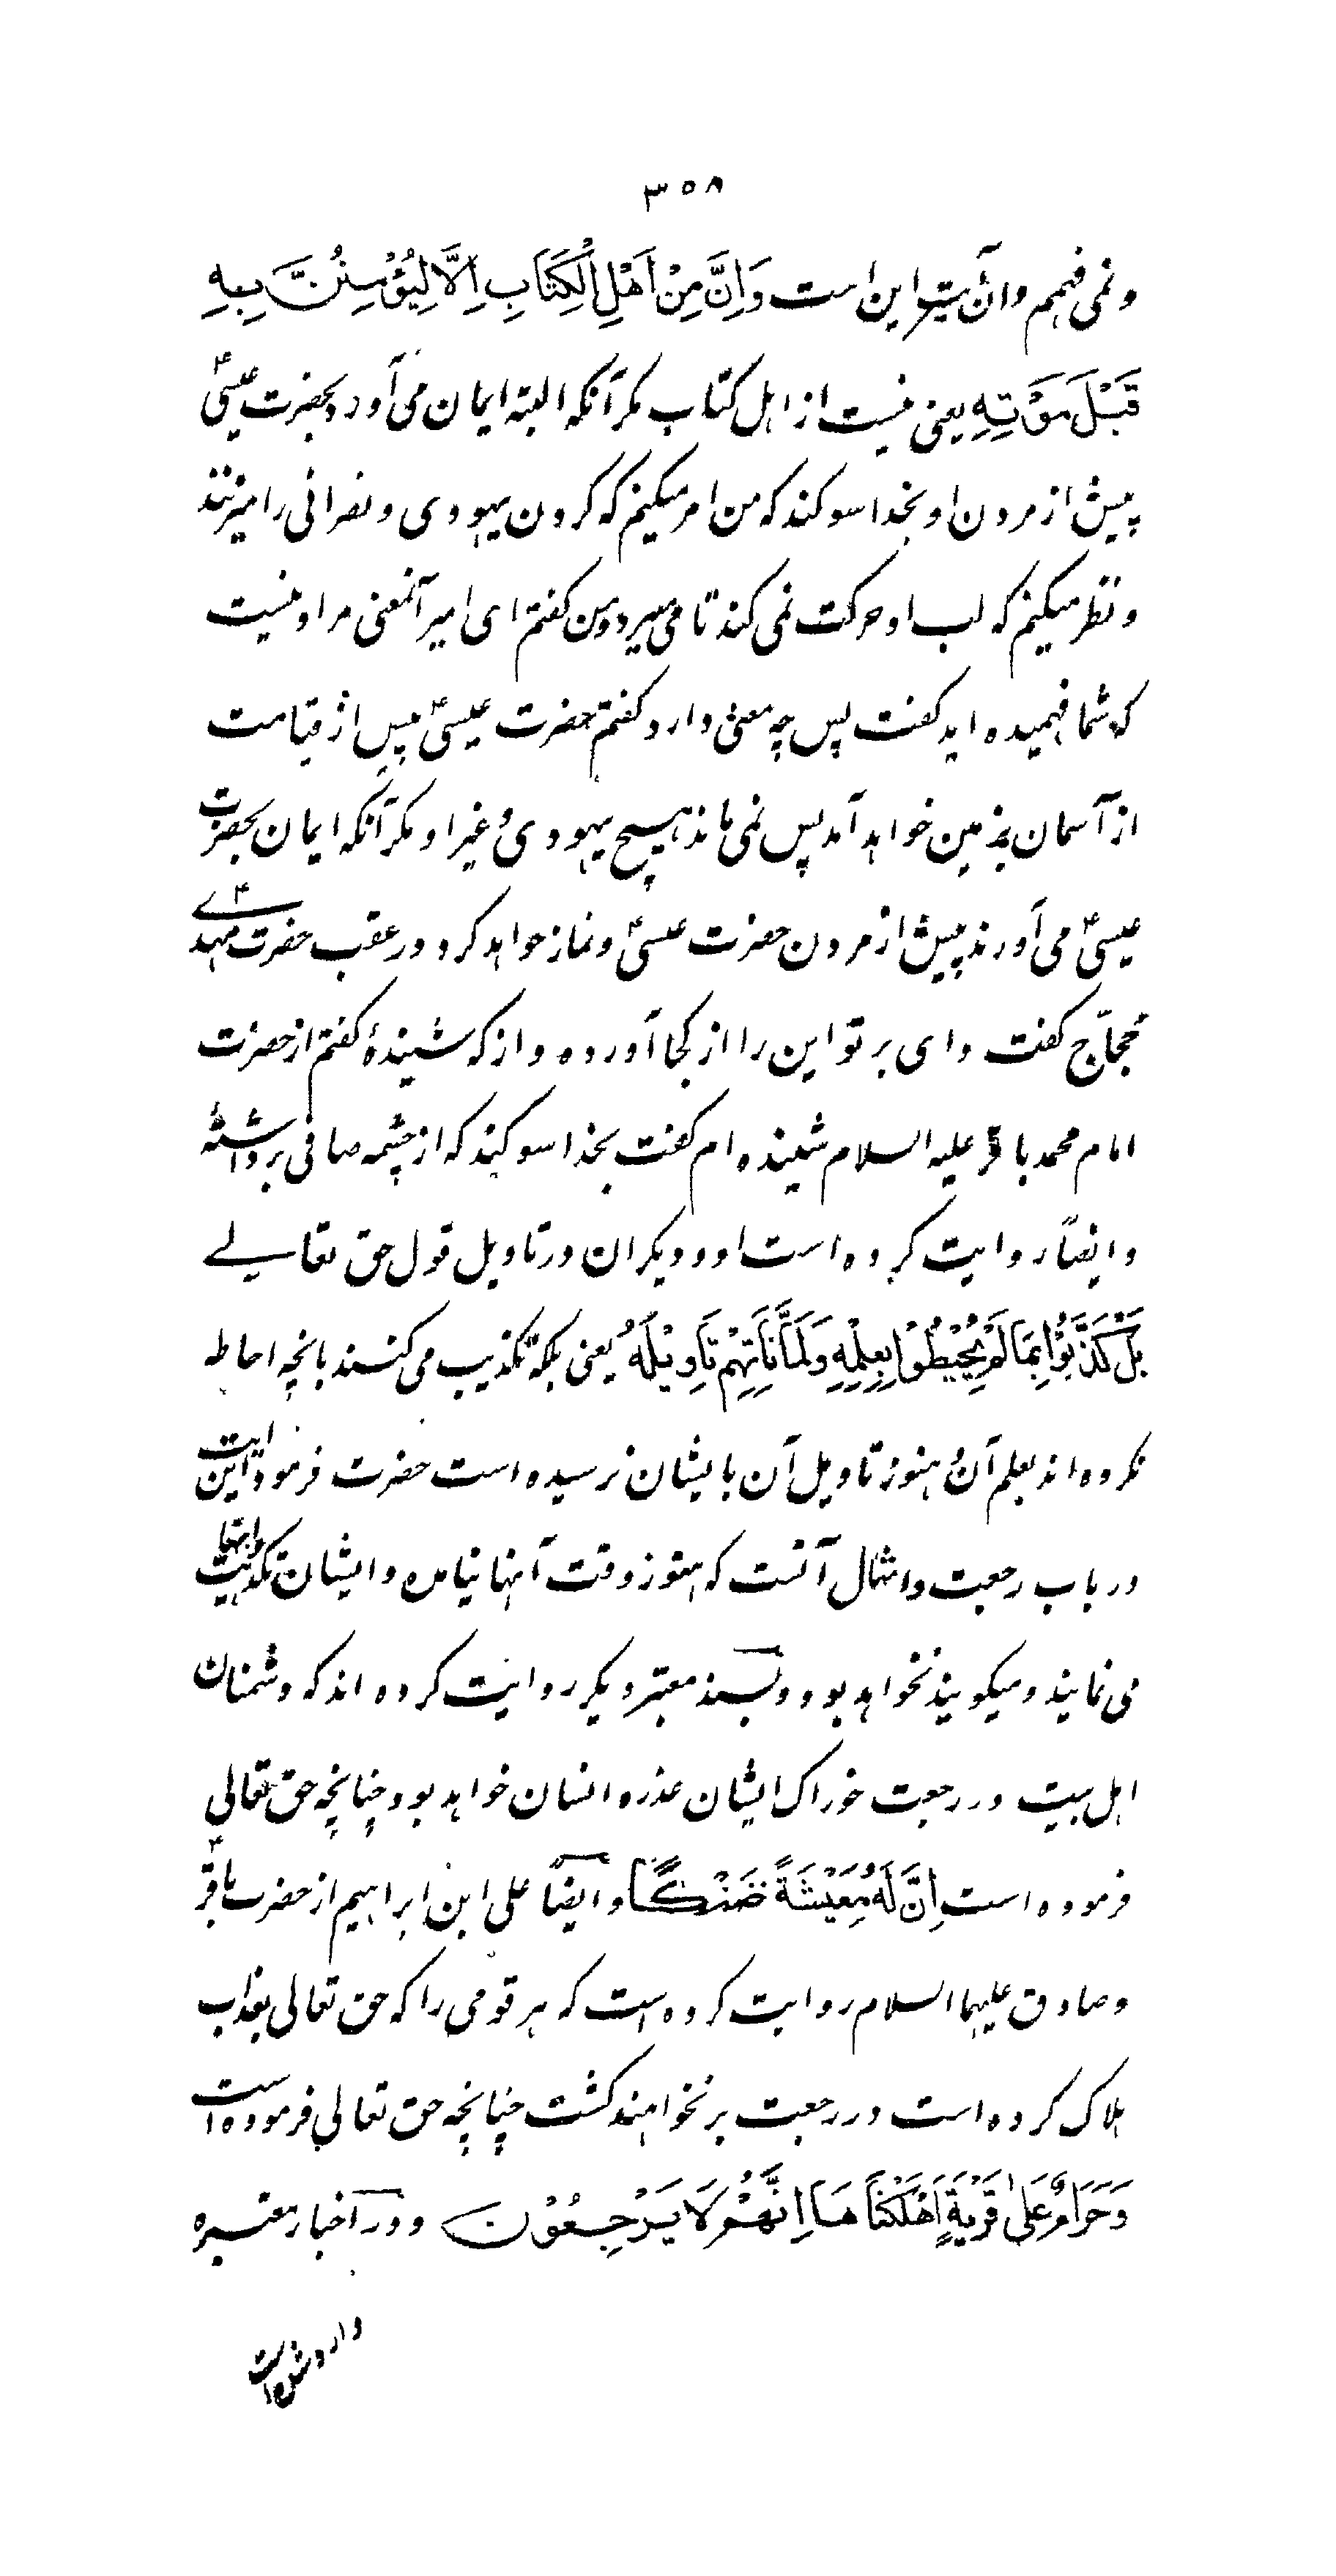 ۳۵۸
و نمی فهمم و آن آیت این است وَاِنَّ مِنْ اَهْلِ الْكِتَابِ اِلَّا لِيُؤْمِنُنَّ بِهِ
قَبْلَ مَوْتِهِ یعنی نیست از اهل کتاب مکر آنکه البته ایمان می آورد بحضرت عیسیؑ
پیش از مردن او بخدا سوکند که من امر میکنم که کردن یهودی و نصرانی را میزنند
و نظر میکنم که لب او حرکت نمی کند تا می میرد و من کفتم ای امیر آنمعنی مراد نیست
که شما فهمیده اید کفت پس چه معنی دارد کفتم حضرت عیسیؑ پیس از قیامت
از آسمان بزمین خواهد آمد پس نمی ماند هیچ یهودی و غیر او مکر آنکه ایمان بحضرت
عیسیؑ می آورند پیش از مردن حضرت عیسیؑ و نماز خواهد کرد در عقب حضرت مهدےؑ
حجّاج کفت وای بر تو این را از کجا آورده و از که شیندۀ کفتم از حضرت
امام محمد باقر علیه السلام شینده ام کفت بخدا سوکند که از چشمه صافی برداشتۀ
و ایضاً روایت کرده است او و دیکران در تاویل قول حق تعالے
بَلْ كَذَّبُوْا بِمَا لَمْ يُحِيْطُوْا بِعِلْمِهِ وَلَمَّا يَاْتِهِمْ تَاْوِيْلُهُ یعنی بلکه تکذیب می کنند بانچه احاطه
نکرده اند بعلم آن و هنوز تاویل آن بایشان نرسیده است حضرت فرمود این آیت
در باب رجعت و امثال آنست که هنوز وقت آنها نیامده و ایشان تکذیب آنها
می نمایند و میکویند نخواهد بود و بسند معتبر دیکر روایت کرده اند که دشمنان
اهل بیت در رجعت خوراک ایشان عذره انسان خواهد بود چنانچه حق تعالی
فرموده است اِنَّ لَهُ مَعِيْشَةً ضَنْكًا و ایضاً علی ابن ابراهیم از حضرت باقرؑ
و صادق علیهما السلام روایت کرده است که هر قومی را که حق تعالی بعذاب
هلاک کرده است در رجعت بر نخواهند کشت چنانچه حق تعالی فرموده است
وَحَرَامٌ عَلٰى قَرْيَةٍ اَهْلَكْنَا هَا اِنَّهُمْ لَا يَرْجِعُوْنَ و در اخبار معتبره
وارد شده است